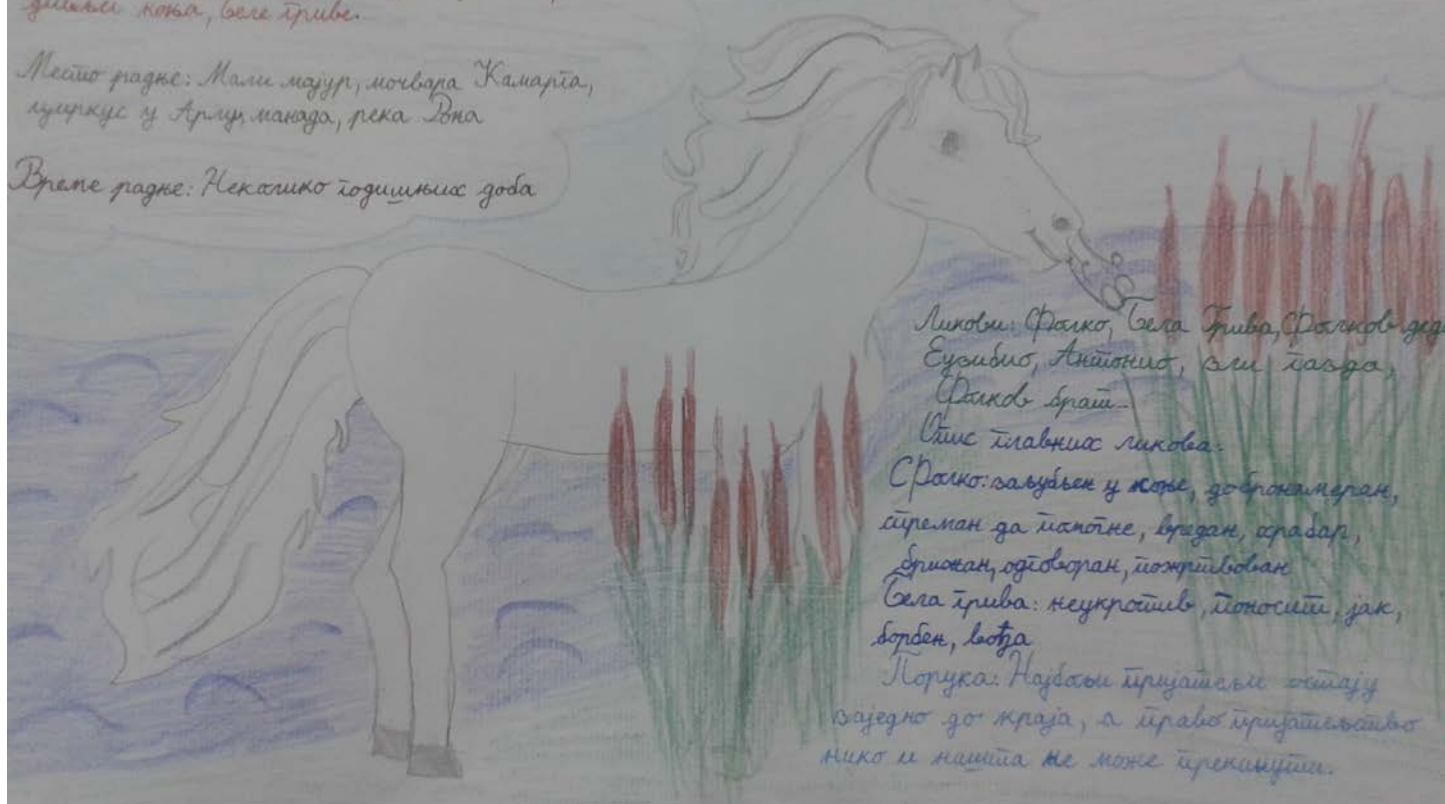 коња, беле гриве.
Место радње: Мали мајур, мочвара Камарга,
циркус у Арлу, манада, река Рона
Време радње: Неколико годишњих доба
Ликови: Фалко, Бела Грива, Фалков дед
Еузибио, Антонио, зли газда,
Фалков брат
Опис главних ликова:
Фалко: заљубљен у коње, добронамеран,
спреман да помогне, вредан, храбар,
брижан, одговоран, пожртвован
Бела грива: неукротив, поносит, јак,
борбен, вођа
Порука: Најбољи пријатељи остају
заједно до краја, а право пријатељство
нико и ништа не може прекинути.